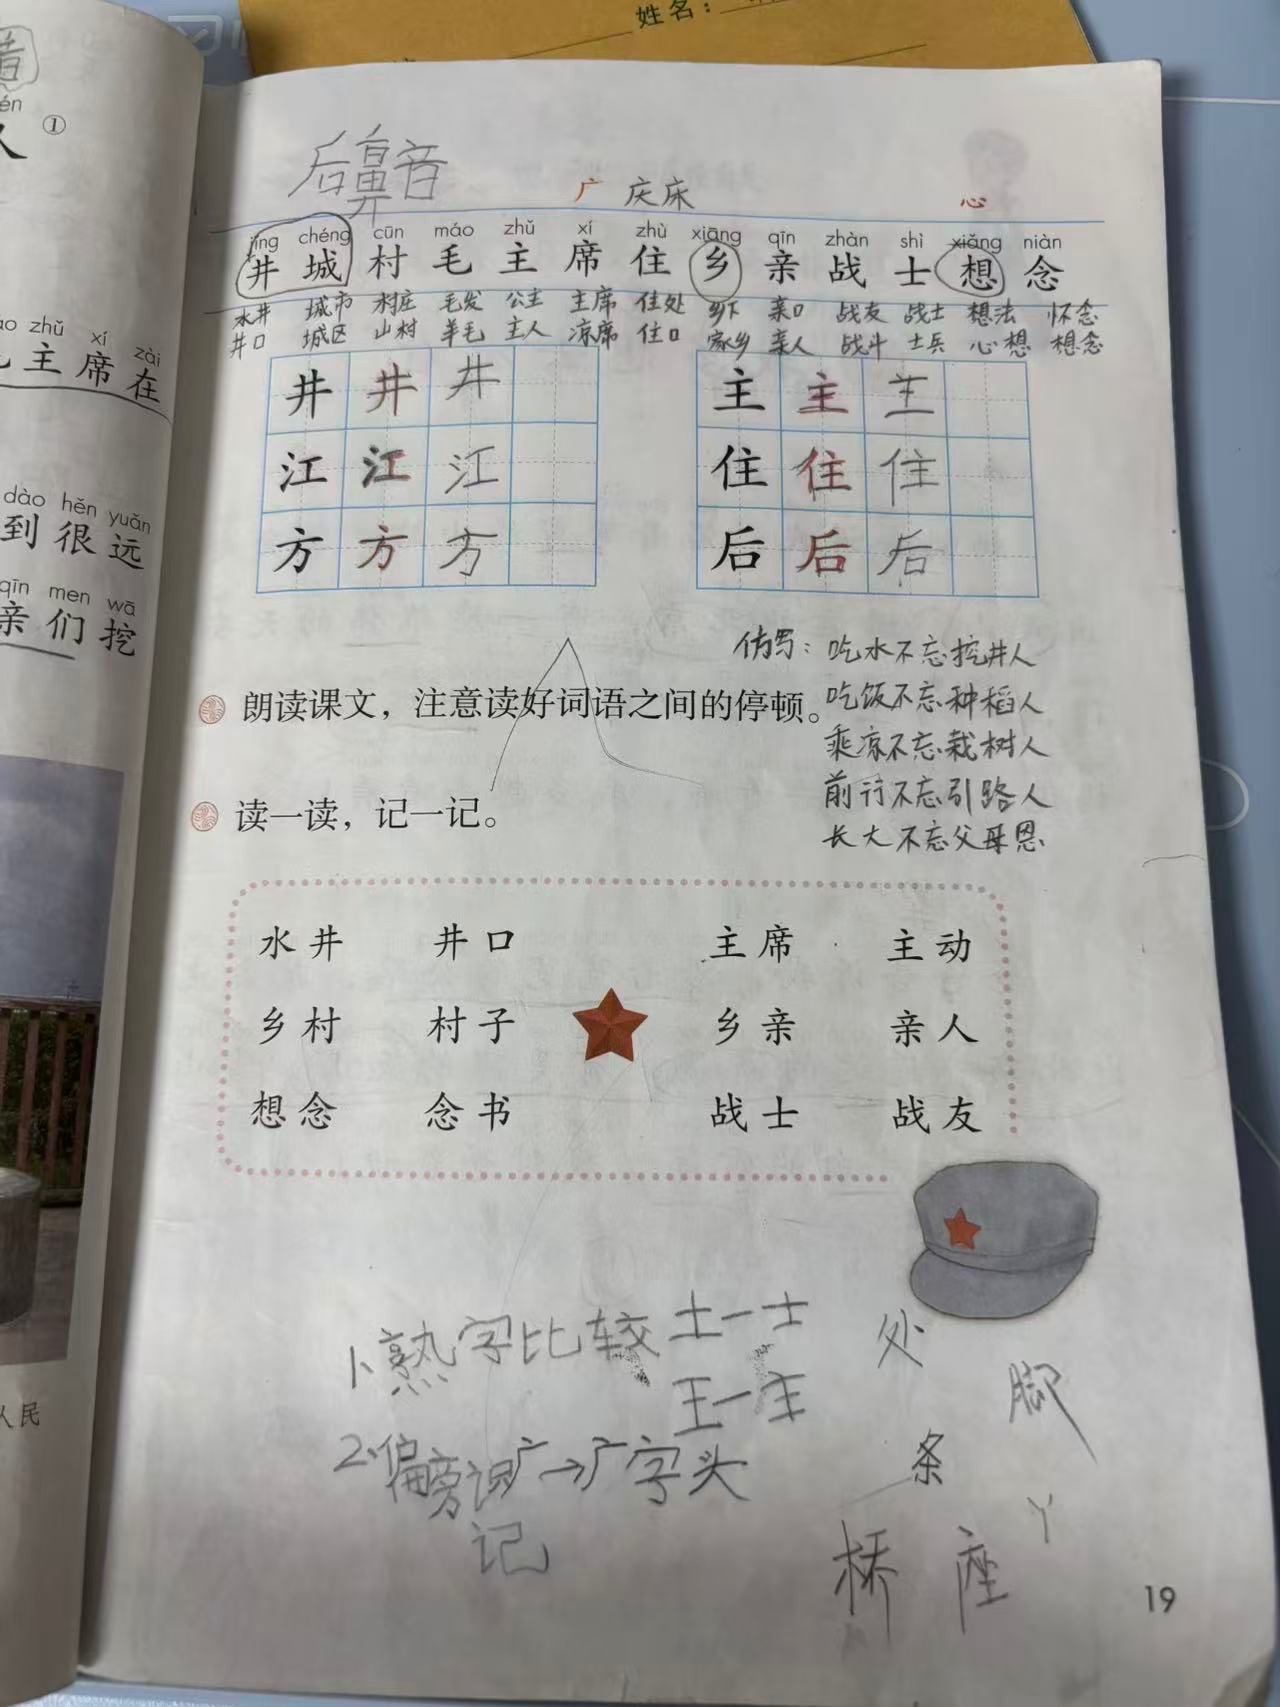 姓名：
én
人 ①
zhǔ xí zài
主席在
dào hěn yuǎn
到很远
qīn men wā
亲们挖
人民
后鼻音
广 庆床 心
jǐng chéng cūn máo zhǔ xí zhù xiāng qīn zhàn shì xiǎng niàn
井 城 村 毛 主 席 住 乡 亲 战 士 想 念
水井 城市 村庄 毛发 公主 主席 住处 乡下 亲口 战友 战士 想法 怀念
井口 城区 山村 羊毛 主人 凉席 住口 家乡 亲人 战斗 士兵 心想 想念
井 井 井 主 主 主
江 江 江 住 住 住
方 方 方 后 后 后
仿写：吃水不忘挖井人
吃饭不忘种稻人
乘凉不忘栽树人
前行不忘引路人
长大不忘父母恩
朗读课文，注意读好词语之间的停顿。
读一读，记一记。
水井 井口 主席 主动
乡村 村子 乡亲 亲人
想念 念书 战士 战友
1、熟字比较 土一士
王一主
2、偏旁识广→广字头
记
处
脚
条
丫
桥 座
19